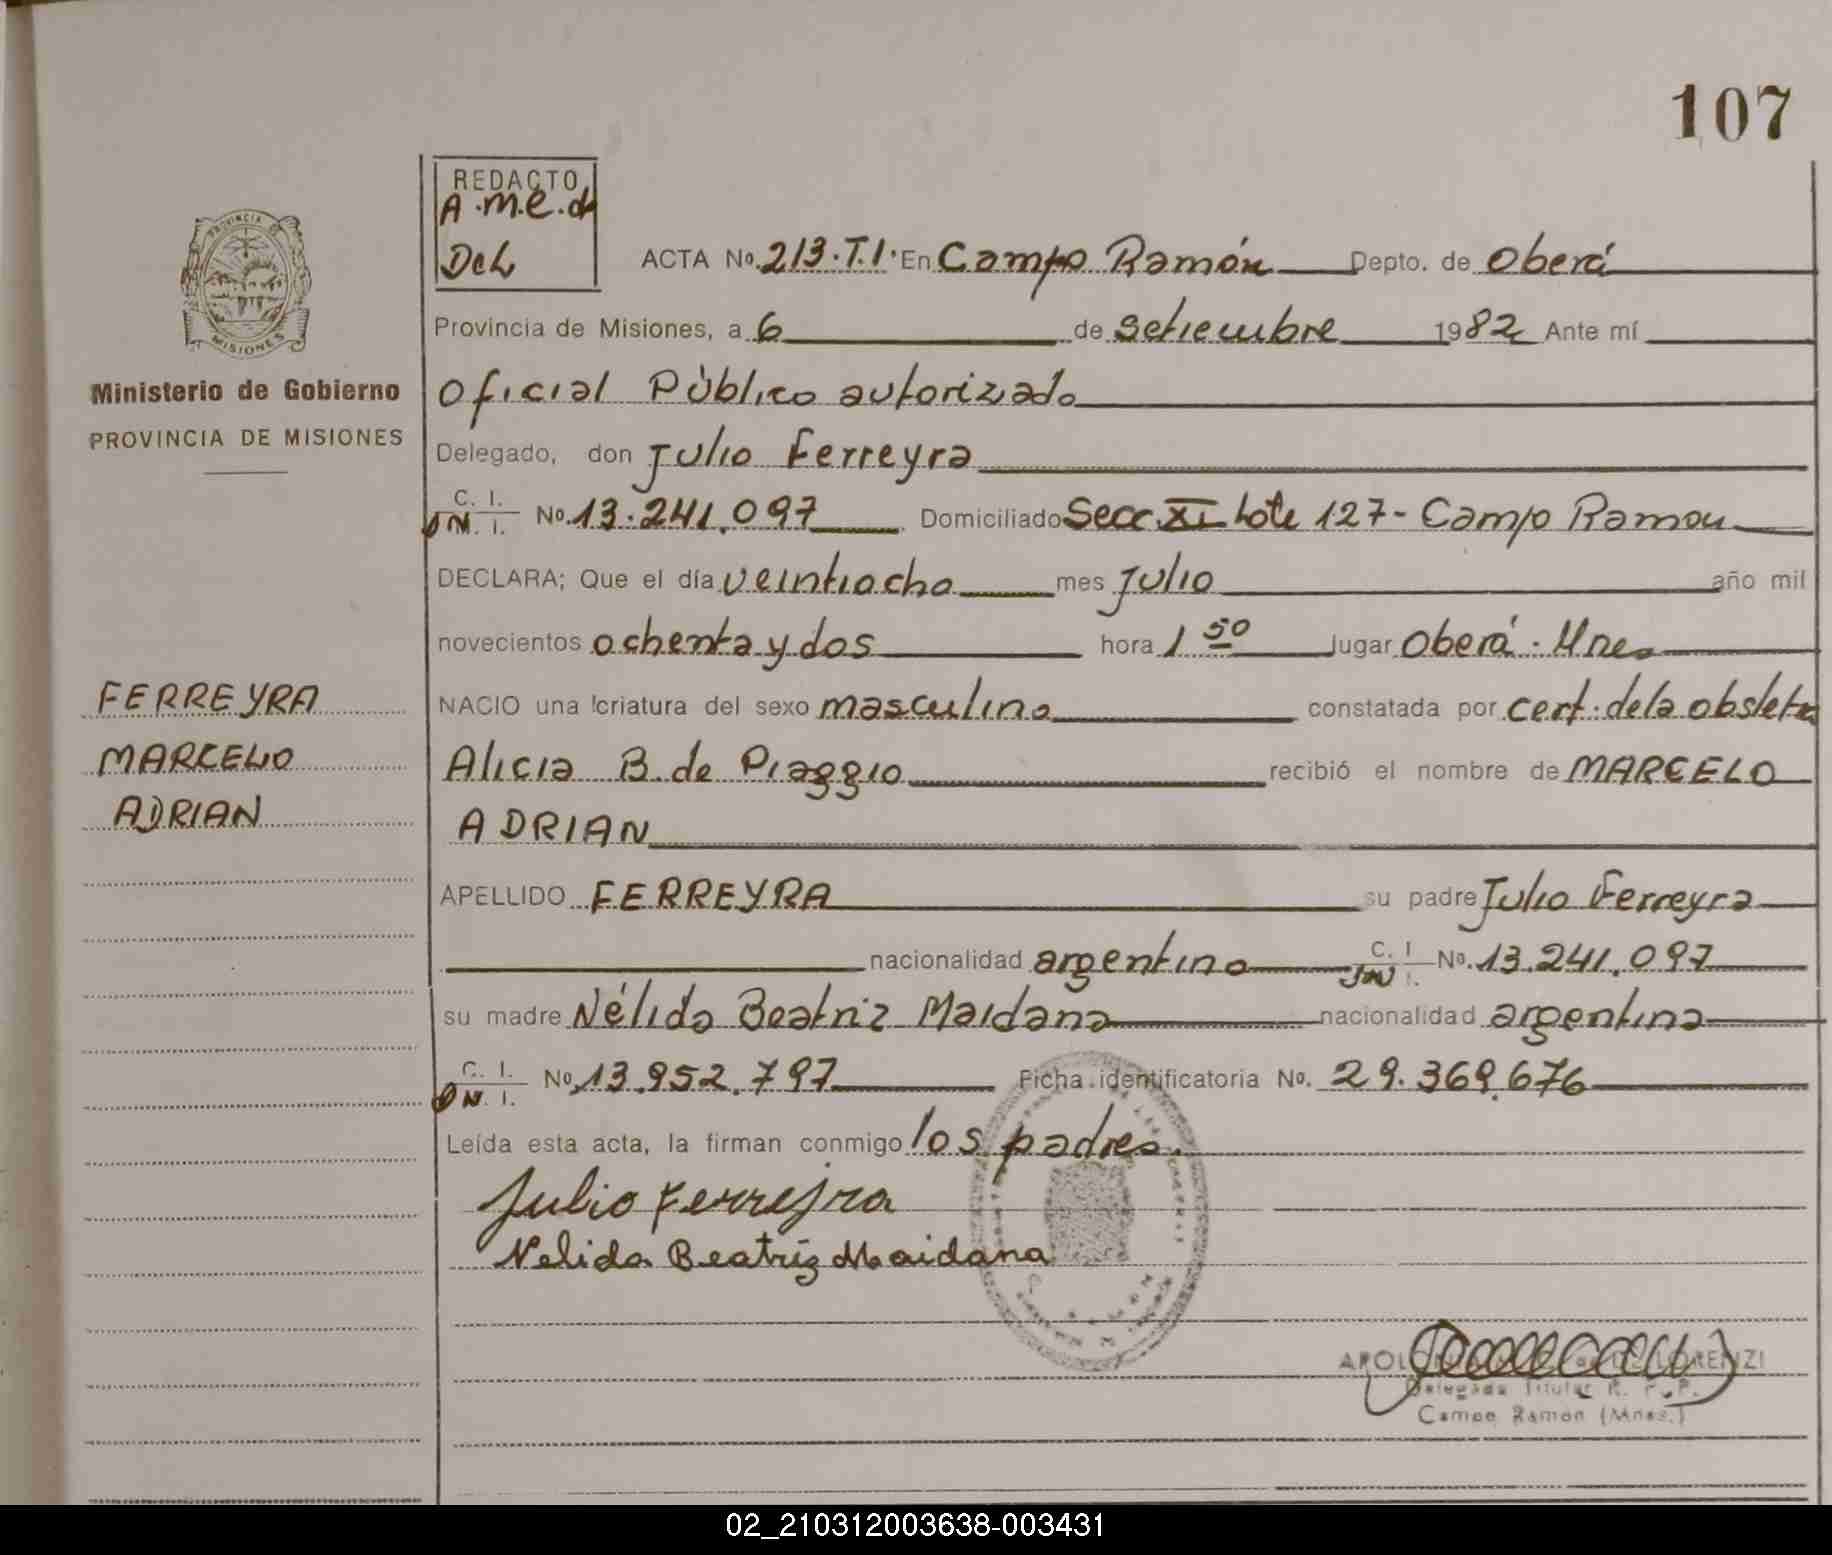 107
REDACTO
A.m.e.d
DeL
ACTA No. 213.T.I. En Campo Ramón Depto. de Oberá
PROVINCIA DE
MISIONES
Provincia de Misiones, a 6 de setiembre 1982 Ante mí
Ministerio de Gobierno
PROVINCIA DE MISIONES
Oficial Público autorizado
Delegado, don Julio Ferreyra
C. I.
DN. I. No. 13.241.097 Domiciliado Secc. XI Lote 127- Campo Ramon
DECLARA; Que el día veintiocho mes Julio año mil
novecientos ochenta y dos hora 1 50 lugar Oberá. Mnes
FERREYRA
MARCELO
ADRIAN
NACIO una criatura del sexo masculino constatada por cert. de la obstetra
Alicia B. de Piaggio recibió el nombre de MARCELO
ADRIAN
APELLIDO FERREYRA su padre Julio Ferreyra
nacionalidad argentino C. I. DN I. No. 13.241.097
su madre Nélida Beatriz Maidana nacionalidad argentina
C. I.
DN. I. No. 13.952.797 Ficha identificatoria No. 29.369.676
Leída esta acta, la firman conmigo los padres.
Julio Ferreyra
Nelida Beatriz Maidana
DE LORENZI
Delegada Titular R. P. P.
Campo Ramon (Mnes.)
02_210312003638-003431